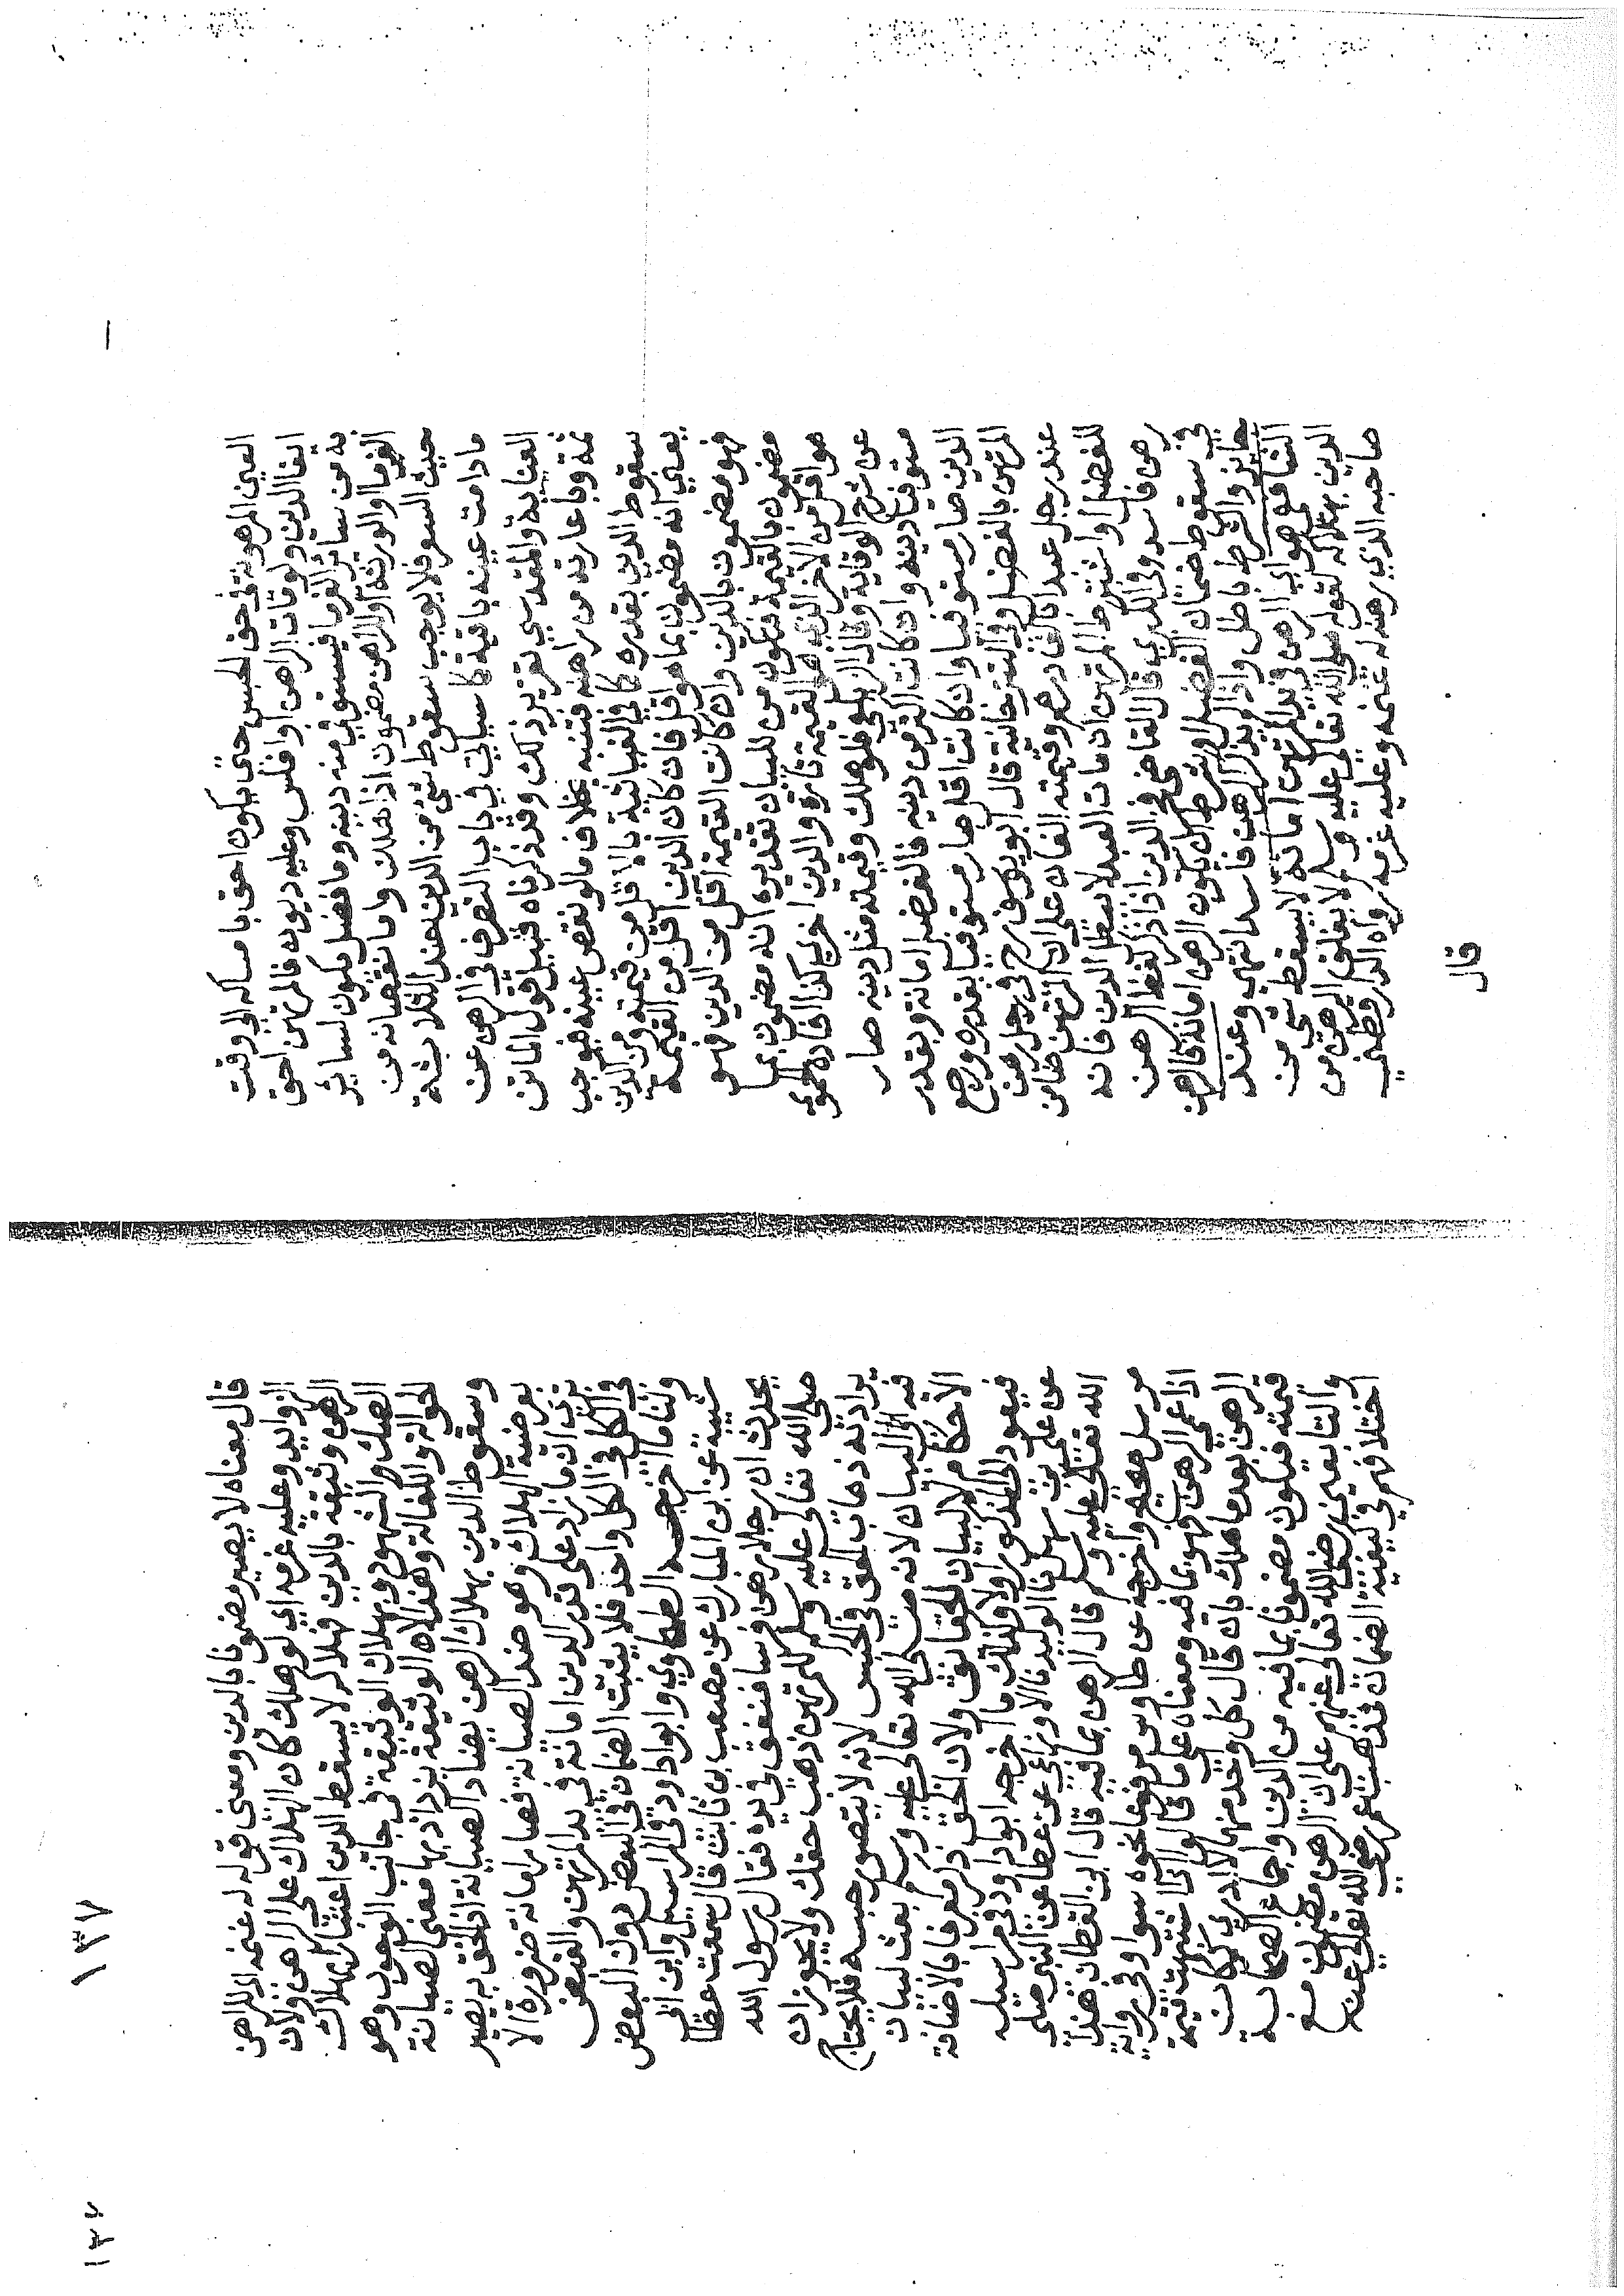 العين المرهونة في حق الحبس حتى يكون احق بامساكه الى وقت
ايفا الدين ولو مات الراهن او افلس وعليه ديون فالمرتهن احق
به من سائر الغرما فيستوفي منه دينه وما فضل يكون لسائر
الغرما او الورثة او للراهن مضمون اذا هلك واما نقصانه من
حيث السعر فلا يوجب سقوط شي من الدين عند الثلاثة
ما دامت عينه باقية كما سياتي في باب التصرف في الرهن عن
العناية والمقدسي تقرير ذلك وقد ذكرناه قبيل قول الماتن
ثمة وباعارته من راهنه فتنبه بخلاف ما لو نقص عينه فيوجب
سقوط الدين بقدره كما في الغياثية بالاقل من قيمته ومن الدين
يعني انه مضمون بما هو اقل فان كان الدين اقل من القيمة
فهو مضمون بالدين وان كانت القيمة اقل من الدين فهو
مضمون بالقيمة فتكون من للبيان تقديره انه مضمون بما
هو اقل من الاخر الذي هو القيمة تارة والدين اخرى كذا افاده الحموي
عن شرح الوقاية وقال الزيلعي فلو هلك وقيمته مثل دينه صار
مستوفيا دينه وان كانت اكثر من دينه فالفضل امانة وبقدر
الدين صار مستوفيا وان كانت اقل صار مستوفيا بقدره ورجع
المرتهن بالفضل وفي التترخانية قال ابو يوسف رح في رجل رهن
عند رجل عبدا بالف درهم وقيمته الفان على ان المرتهن ضامن
للفضل او اشترط المرتهن ان مات العبد لا يبطل الدين فانه
رهن فاسد وفي الكبرى قال القاضي فخر الدين اذا ذكر لفظ الرهن
في سقوط ضمان الفضل او شرط ان يكون الرهن امانة فالرهن
جائز والشرط باطل واذا لم يذكر الرهن فاسدا انتهى وعند
الشافعي هو اي الرهن في يد المرتهن امانة لا يسقط شي من
الدين بهلاكه لقوله صلى الله تعالى عليه وسلم لا يغلق الرهن من
صاحبه الذي رهنه له غنمه وعليه غرمه رواه الدارقطني
قال
١٣٧
قال معناه لا يصير مضمونا بالدين ومعنى قوله له غنمه اي للراهن
الزوايد وعليه غرمه اي لو هلك كان الهلاك على الراهن ولان
الرهن وثيقة بالدين فبهلاكه لا يسقط الدين اعتبارا بهلاك
الصك والشهود وبهلاك الوثيقة في جانب الوجوب وهو
الحوالة والكفالة وهذا لان الوثيقة يزداد بها معنى الصيانة
وسقوط الدين بهلاك الرهن يضاد الصيانة اذ الحق به يصير
بعرضية الهلاك وهو ضد الصيانة فصار امانة ضرورة الا
يرى ان ما زاد على قدر الدين امانة في يد المرتهن والقبض
في الكل واحد فلا يثبت الضمان في البعض دون البعض
ولنا ما اخرجه الطحاوي وابو داود في المراسيل وابن ابي
شيبة عن ابن المبارك عن مصعب بن ثابت قال سمعت عطا
يحدث ان رجلا رهن فرسا فنفق في يده فقال رسول الله
صلى الله تعالى عليه وسلم للمرتهن ذهب حقك ولا يجوز ان
يراد به ذهاب الحق في الحبس لانه لا يتصور حبسه فلا يحتاج
فيه الى البيان لانه صلى الله تعالى عليه وسلم بعث لبيان
الاحكام لا لبيان الحقائق ولان الحق ذكر معرفا بالاضافة
فيعود الى المذكور اولا وكذلك ما اخرجه ابو داود في مراسيله
عن علي بن سهل نا الوليد نا الاوزاعي عن عطا عن النبي صلى
الله تعالى عليه وسلم قال الرهن بما فيه قال ابن القطان هذا
مرسل صحيح واخرجه عن طاوس مرفوعا نحوه سوا وفي رواية
اذا عمي الرهن فهو بما فيه ومعناه على ما قالوا اذا اشتبهت قيمة
الرهن بعد ما هلك بان قال كل واحد منهما لا ادري كم كانت
قيمته فيكون مضمونا بما فيه من الدين واجماع الصحابة
والتابعين رضي الله تعالى عنهم على ان الرهن مضمون مع
اختلافهم في كيفية الضمان فذهب عمر رضي الله تعالى عنه
١٣٧